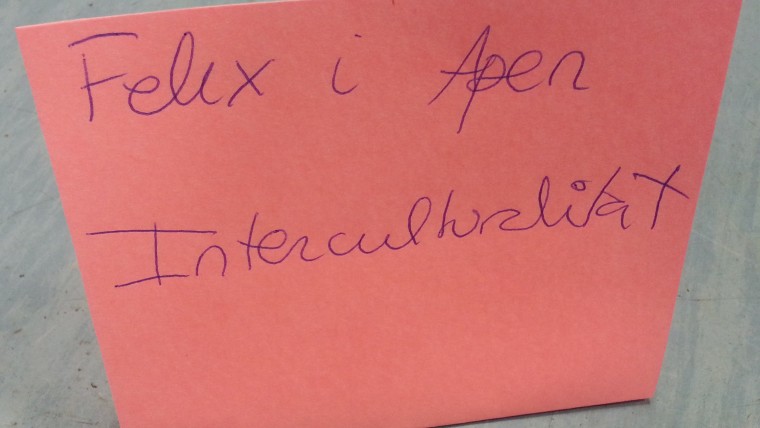 Felix i Apen
Interculturalitat